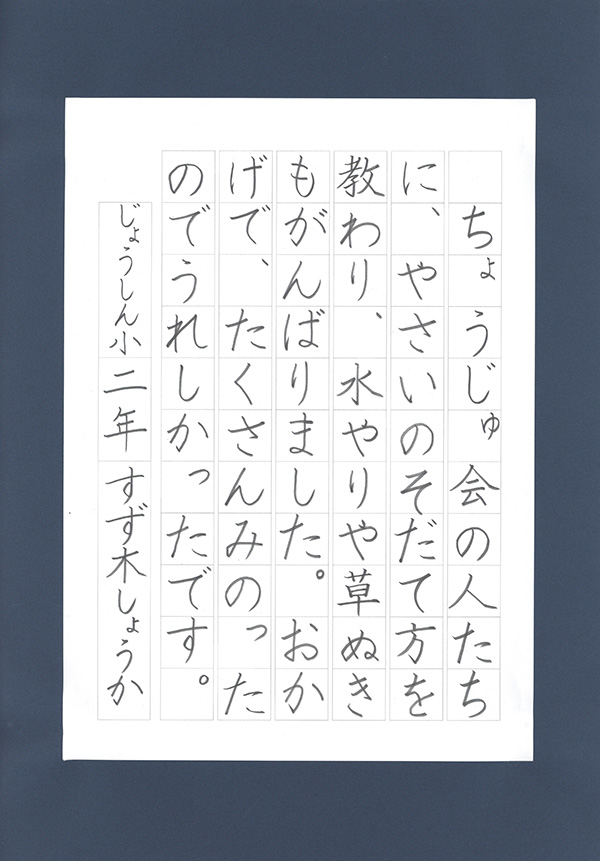 ちょうじゅ会の人たち
に、やさいのそだて方を
教わり、水やりや草ぬき
もがんばりました。おか
げで、たくさんみのった
のでうれしかったです。
じょうしん小二年すず木しょうか